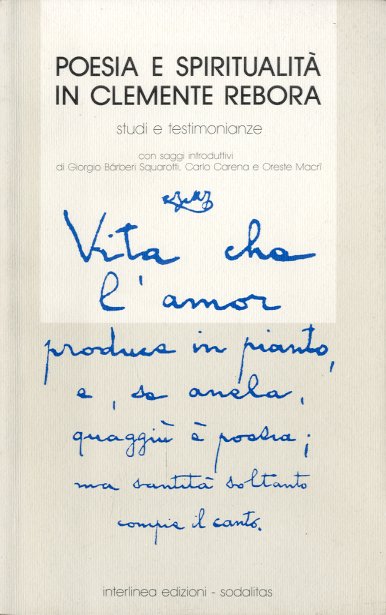 POESIA E SPIRITUALITÀ
IN CLEMENTE REBORA
studi e testimonianze
con saggi introduttivi
di Giorgio Bárberi Squarotti, Carlo Carena e Oreste Macrí
Vita che
l'amor
produce in pianto,
e, se anela,
quaggiù è poesia;
ma santità soltanto
compie il canto.
interlinea edizioni - sodalitas